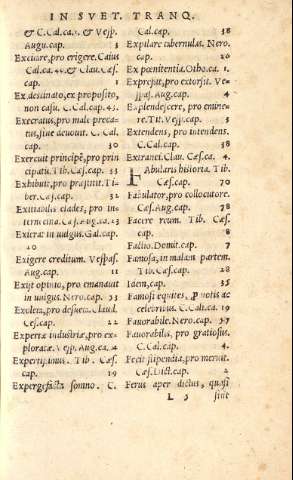 IN SVET. TRANQ.
& C. Cal. ca. 1. & Vesp.
Aug. cap. 5
Exciare, pro erigere. Caius
Cal. ca. 45. & Clau. Cæs.
cap. 1
Ex destinato, ex proposito,
non casu. C. Cal. cap. 43.
Execratus, pro male preca-
tus, siue deuouit. C. Cal.
cap. 30
Exercuit principē, pro prin
cipatū. Tib. Cæs. cap. 33
Exhibuit, pro præstitit. Ti-
ber. Cæs. cap. 32
Exitiabilis clades, pro in-
ternecina. Cæs. au. ca. 23
Exierat in uulgus. Gal. cap.
20
Exigere creditum. Vespas.
Aug. cap. 11
Exijt opinio, pro emanauit
in uulgus. Nero. cap. 53
Exoleta, pro desueta. Claud.
Ces. cap. 22
Expertæ industriæ, pro ex-
ploratæ. Vesp. Aug. ca. 4
Expertissimus. Tib. Cæs.
cap. 19
Expergefacta somno. C.
Cal. cap. 38
Expilare tabernulas. Nero.
cap. 26
Ex pœnitentia. Otho. ca. 1.
Expressit, pro extorsit. Ve-
spas. Aug. cap. 4
Explendescere, pro emine-
re. Tit. Vesp. cap. 3
Extendens, pro intendens.
C. Cal. cap. 38
Extranei. Clau. Cæs. ca. 4.
Fabularis historia. Tib.
Cæs. cap. 70
Fabulator, pro collocutore.
Cæs. Aug. cap. 78
Facere reum. Tib. Cæs.
cap. 8
Factio. Domit. cap. 7
Famosa, in malam partem.
Tib. Cæs. cap. 28
Idem, cap. 35
Famosi equites, p notis ac
celebribus. C. Cali. ca. 19
Fauorabile. Nero. cap. 37
Fauorabilis, pro gratiosus.
C. Cal. cap. 4.
Fecit stipendia, pro meruit.
Cæs. Dict. cap. 2
Ferus aper dictus, quasi
L 3 sint